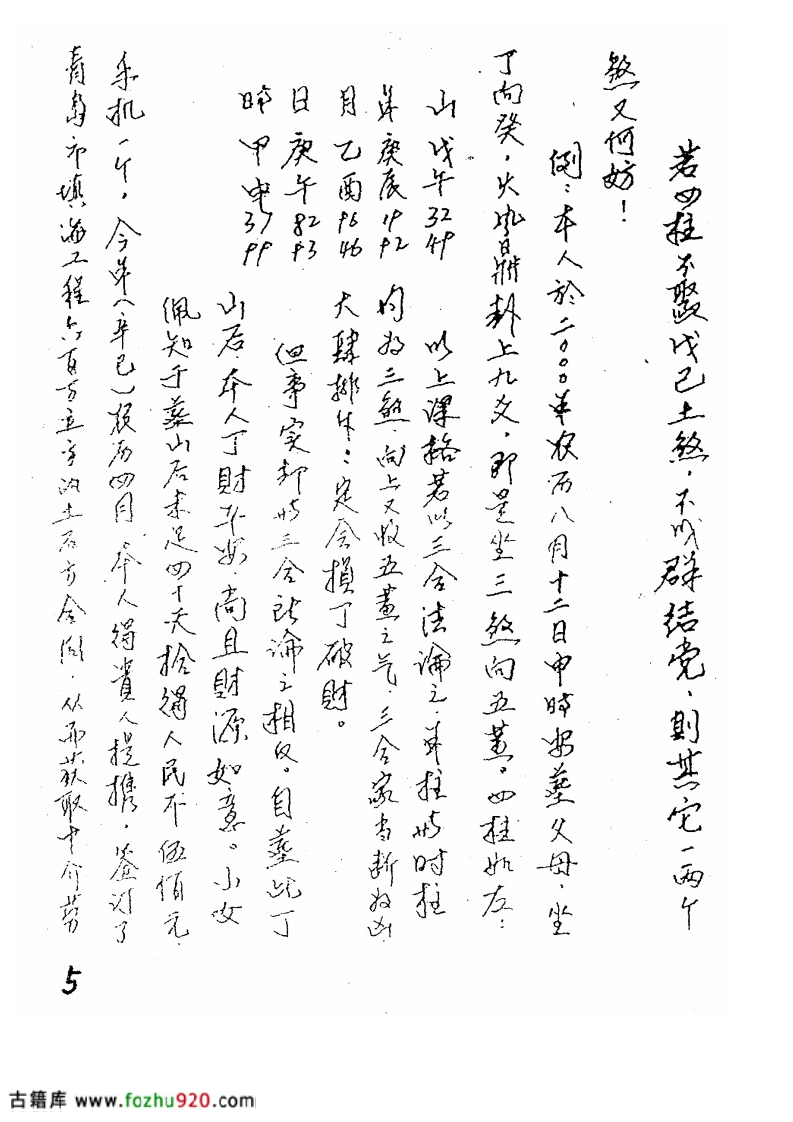 若四柱不聚戊己土煞，不成群结党，则其它一两个
煞又何妨！
例：本人於二000年农历八月十二日申時安葬父母，坐
丁向癸，火風鼎卦上九爻，即是坐三煞向五黄。四柱如左：
山 戊午 32 49
年 庚辰 19 92
月 乙酉 96 46
日 庚午 82 93
時 甲申 37 99
以上课格若以三合法論之，年柱与时柱
均为三煞，向上又收五黄之气，三合家当断为凶，
大肆排斥：定会損丁破財。
但事实却与三合所論之相反。自葬此丁
山后，本人丁財平安，尚且財源如意。小女
佩知于葬山后未足四十天拾得人民币伍佰元，
手机一个，今年（辛巳）農历四月，本人得貴人提携，签订了
青島市填海工程六百万立方的土石方合同，从而获取中介劳
5
古籍库 www.fozhu920.com